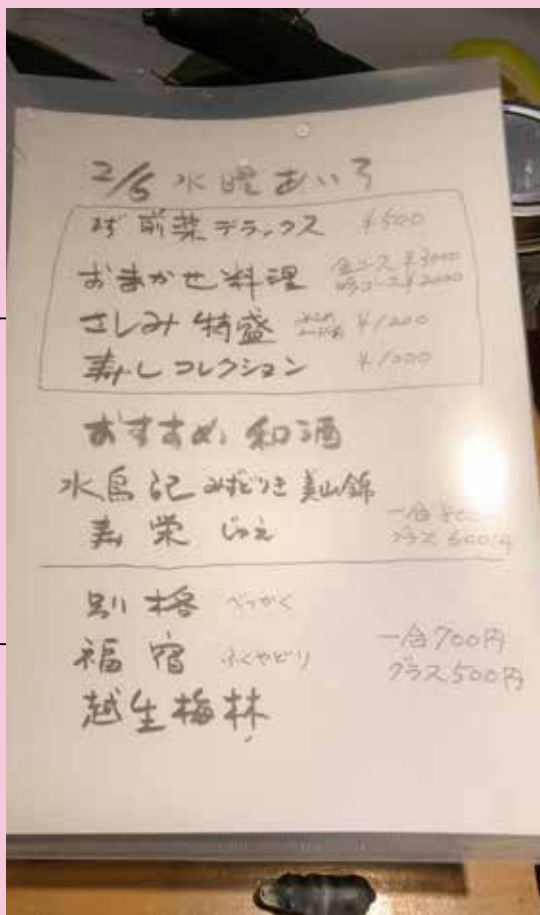 2/5 水曜あいろ
前菜デラックス ¥500
おまかせ料理 ¥3000
コース ¥2000
さしみ特盛 ¥1200
寿しコレクション ¥1000
おすすめ 和酒
水鳥記 みずどりき 美山錦
寿 栄 じゅえ
一合
グラス 600円
別格 べっかく
福宿 ふくやどり
一合700円
グラス500円
越生梅林